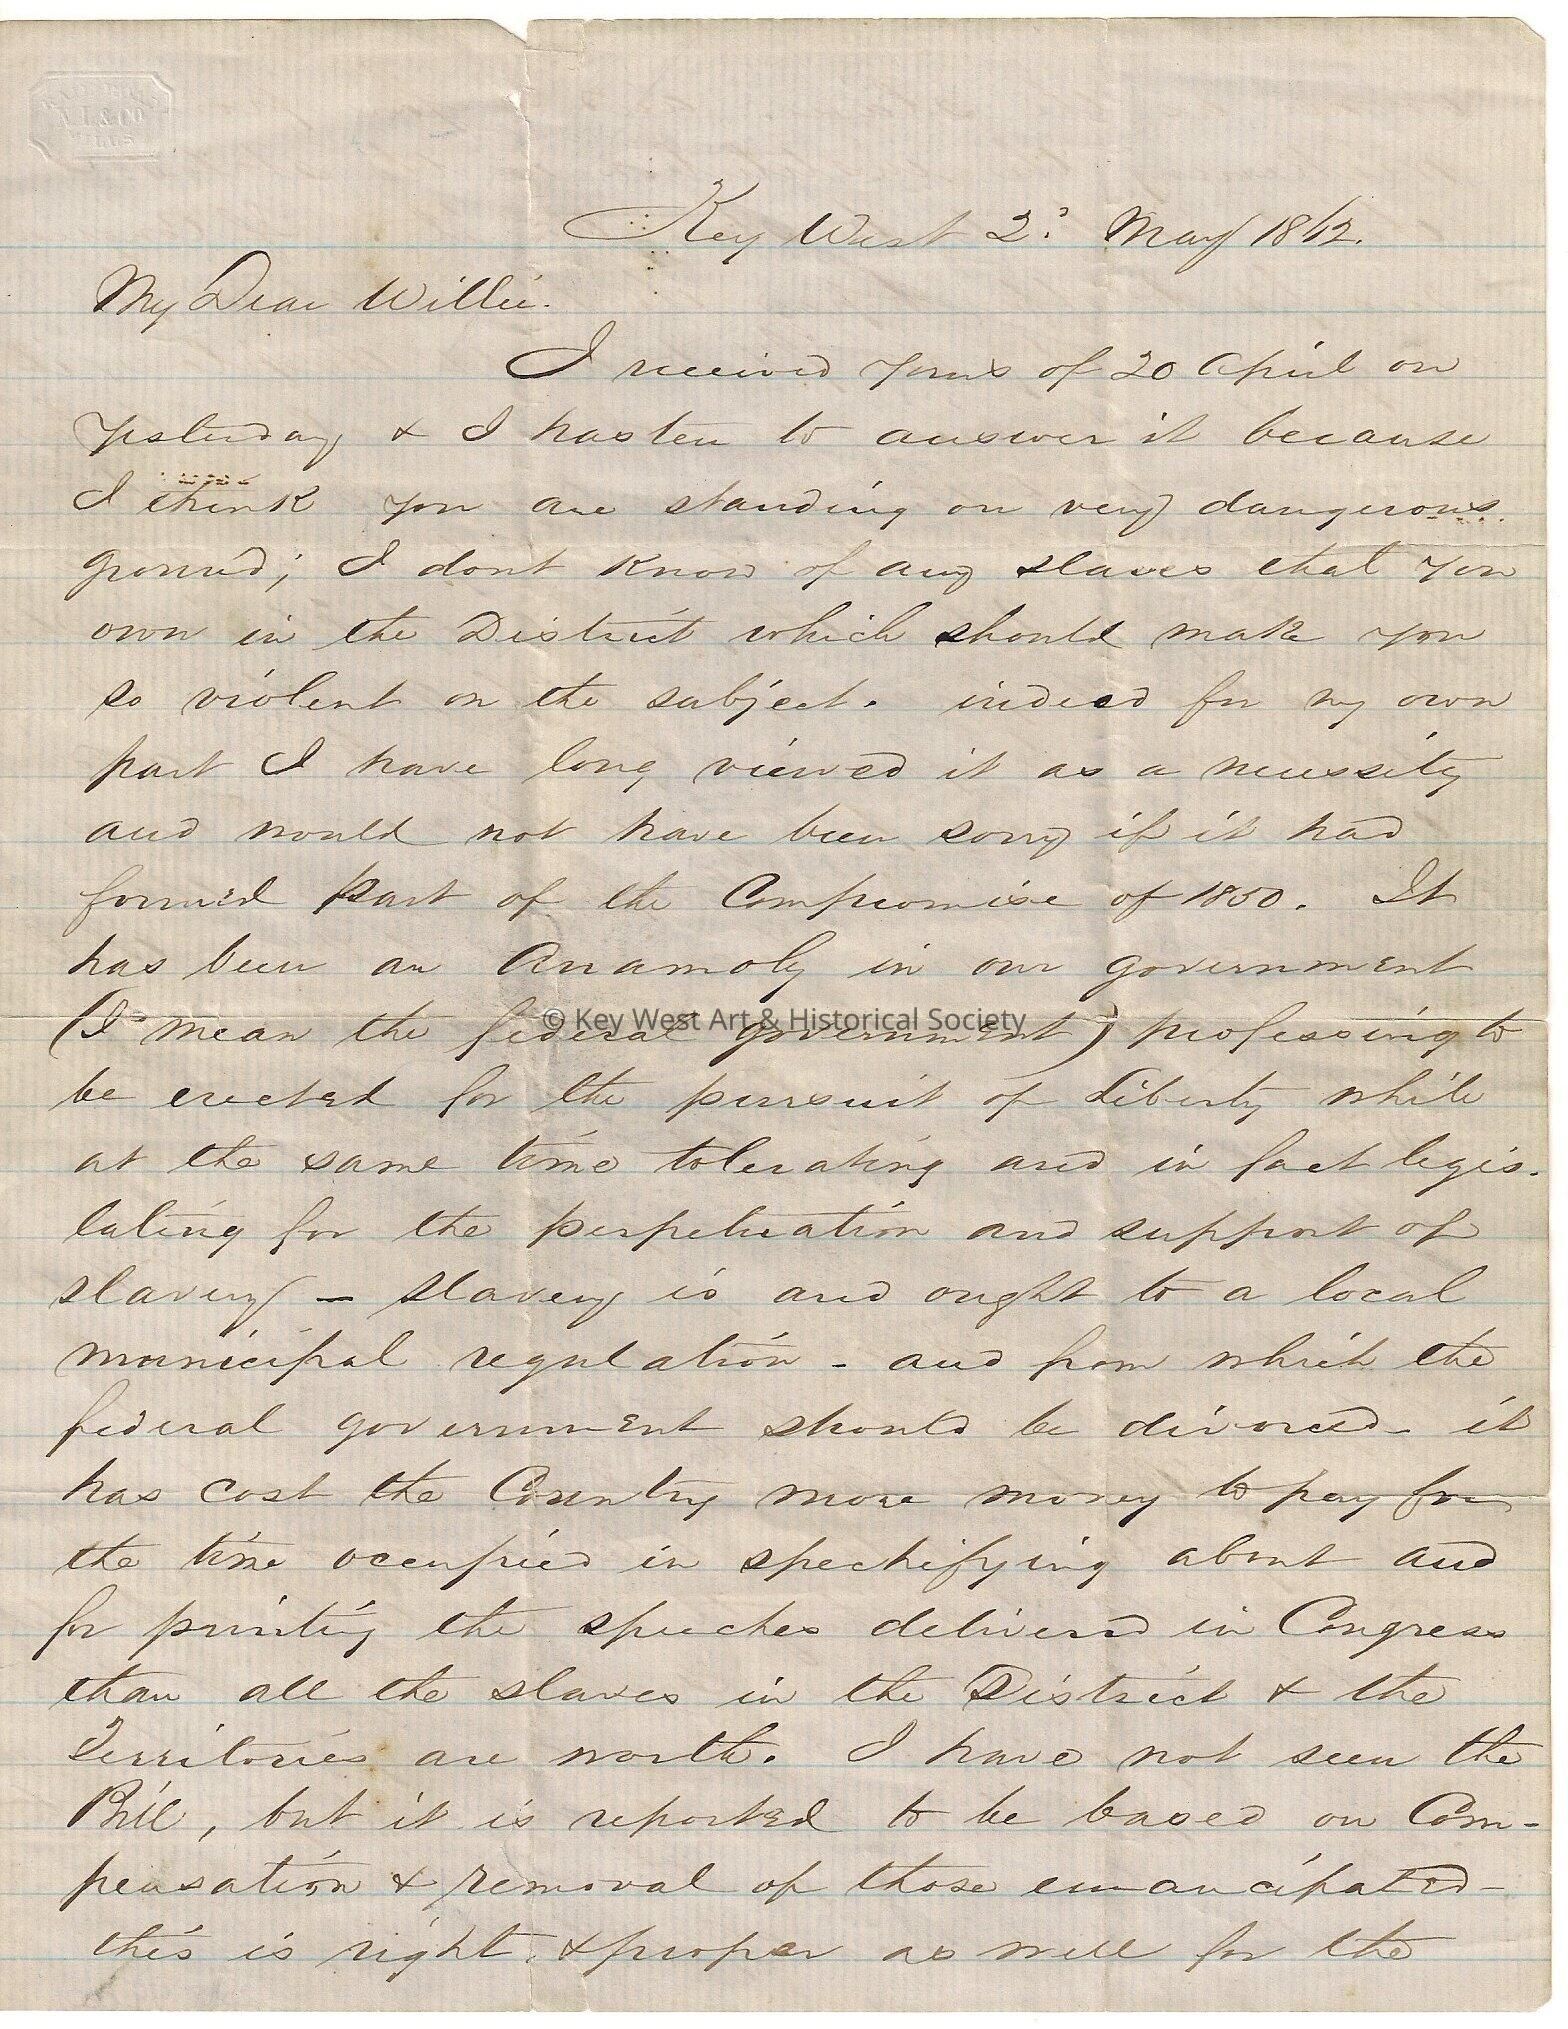 Key West 2d May 1862.
My Dear Willie.
I received yours of 20 April on
yesterday & I hasten to answer it because
I think you are standing on very dangerous
ground; I dont know of any slaves that you
own in the District which should make you
so violent on the subject. indeed for my own
part I have long viewed it as a necessity
and would not have been sorry if it had
formed part of the Compromise of 1850. It
has been an Anamoly in our government
(I mean the federal government) professing to
be erected for the pursuit of Liberty while
at the same time tolerating and in fact legis-
lating for the perpetuation and support of
slavery – slavery is and ought to a local
municipal regulation - and from which the
federal government should be divorced - it
has cost the Country more money to pay for
the time occupied in speechifying about and
for printing the speeches delivered in Congress
than all the slaves in the District & the
Territories are worth. I have not seen the
Bill, but it is reported to be based on Com-
pensation & removal of those emancipated -
this is right & proper as well for the
© Key West Art & Historical Society